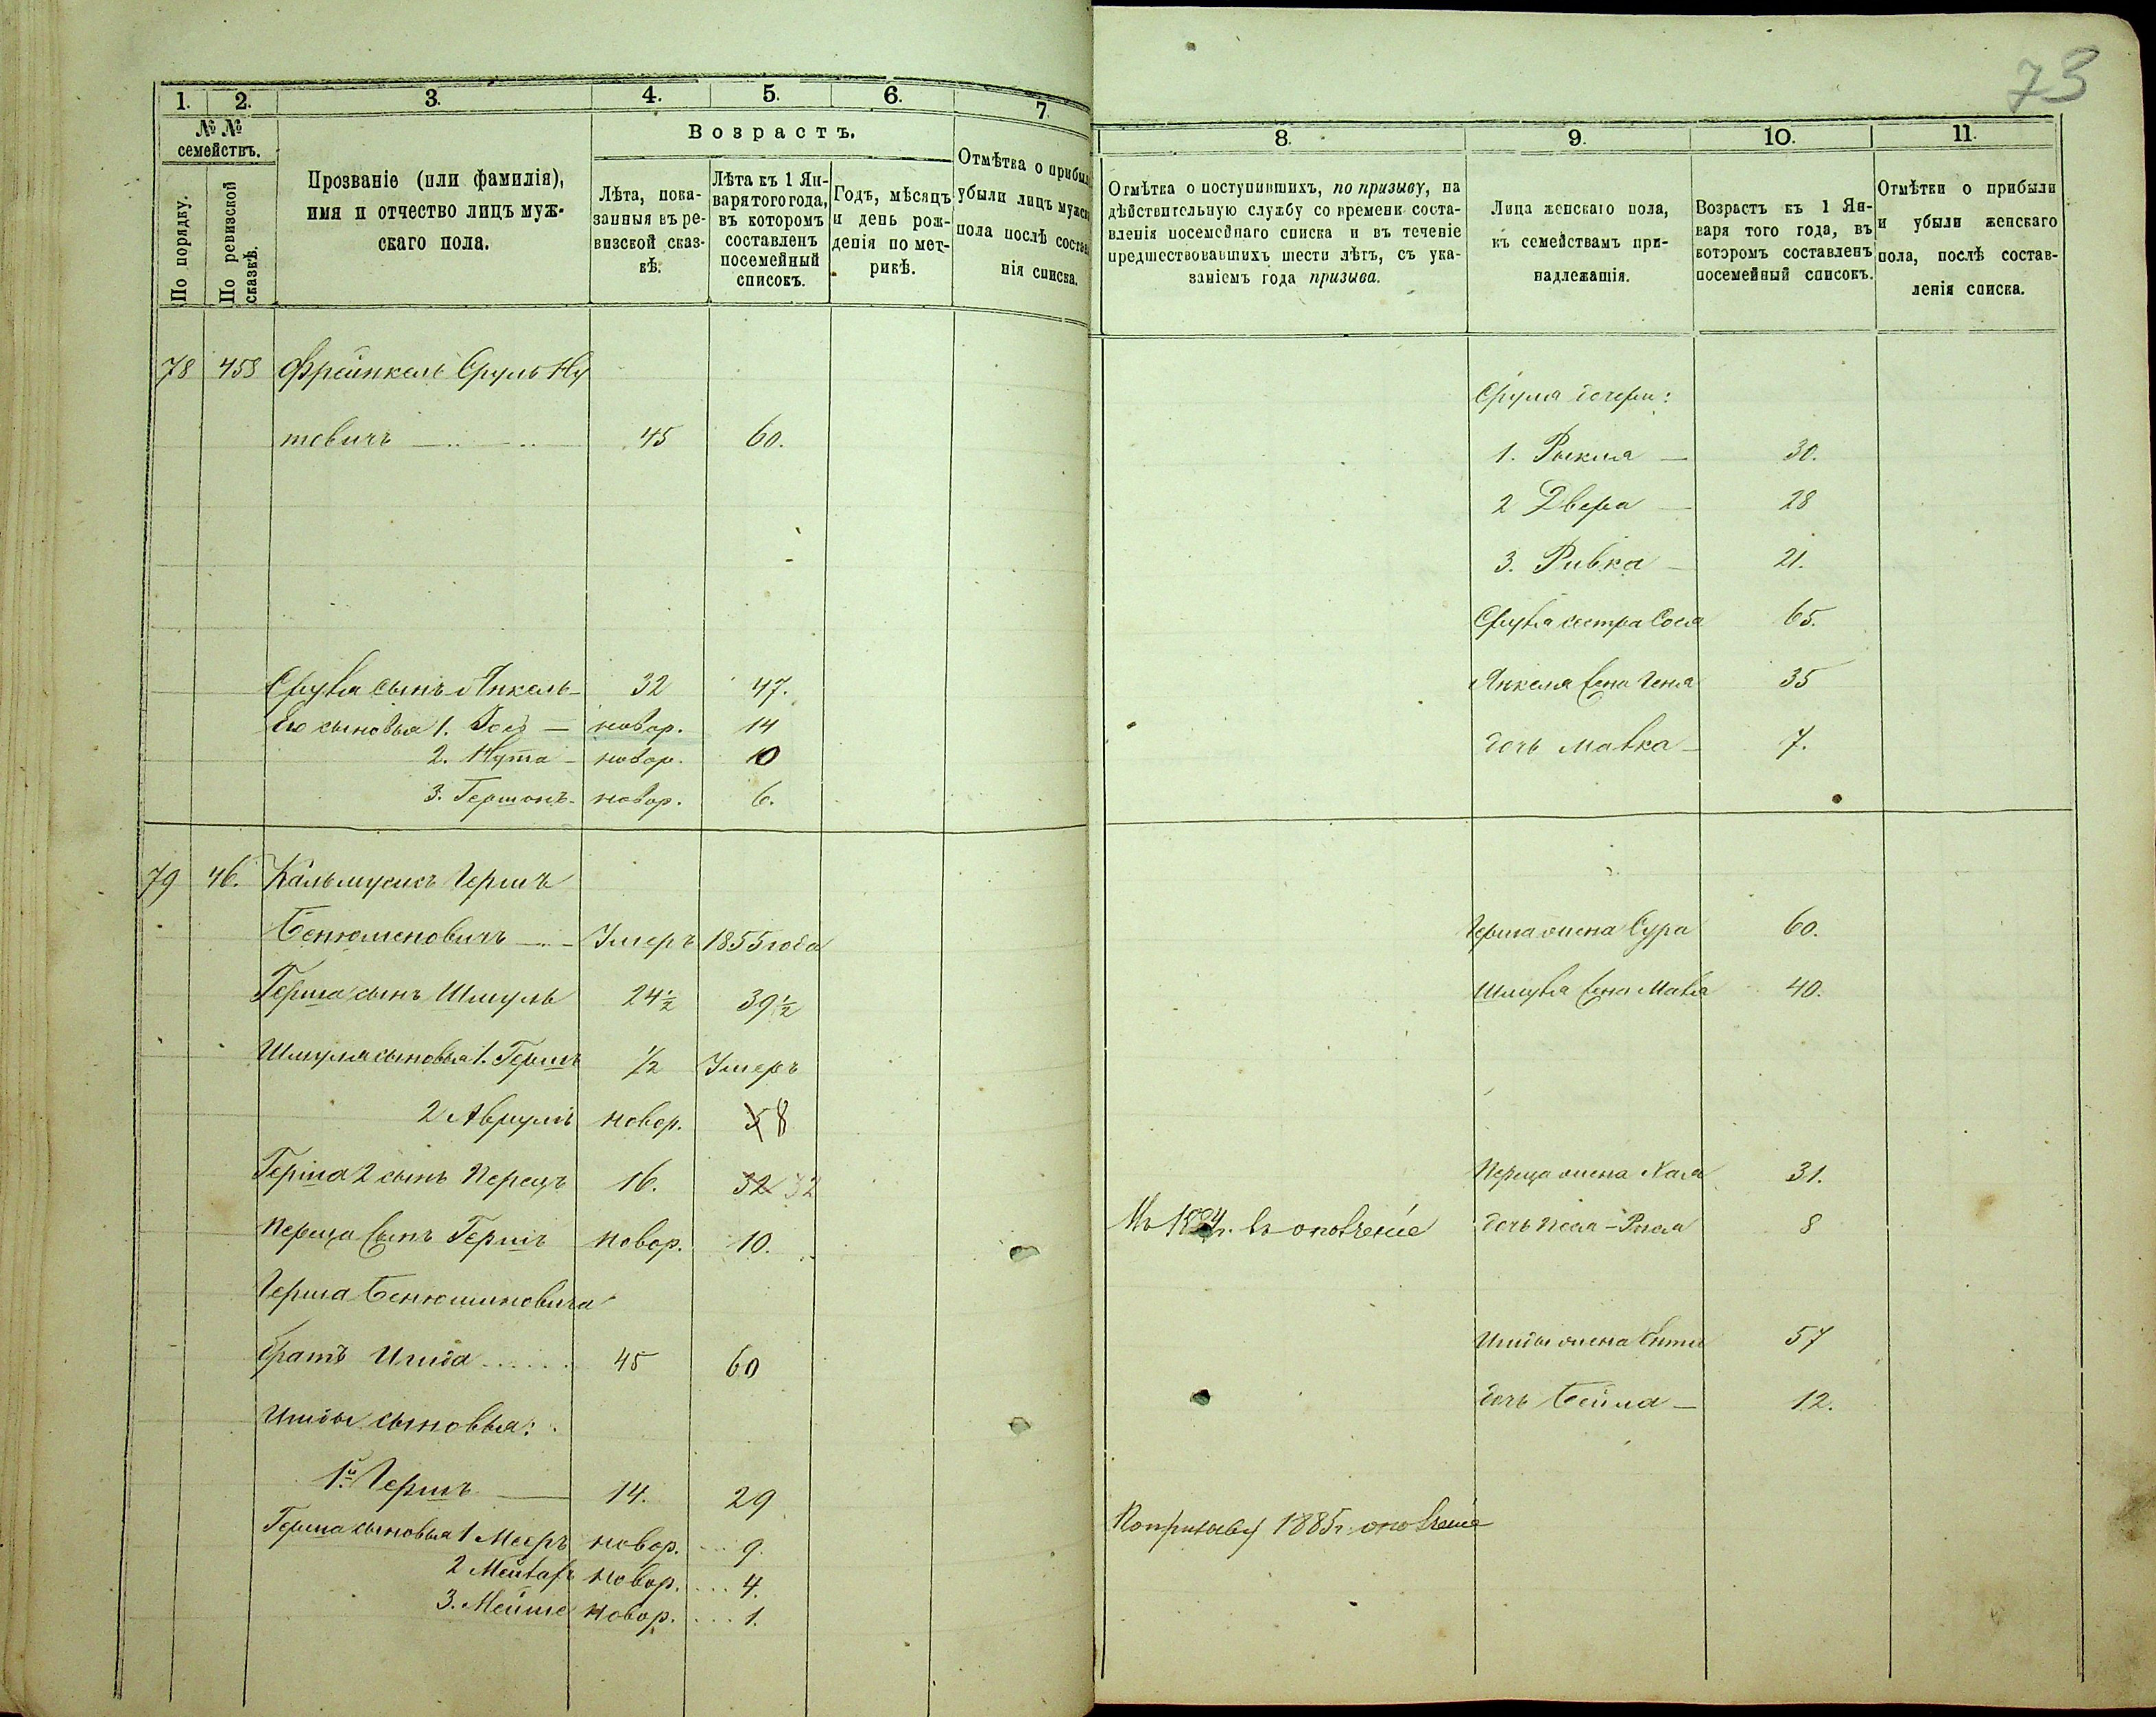 73
1. 2. 3. 4. 5. 6. 7.
№ № семействъ.
По порядку.
По ревизской сказкѣ.
Прозваніе (или фамилія),
имя и отчество лицъ муж-
скаго пола.
Возрастъ.
Лѣта, пока-
занныя въ ре-
визской сказ-
кѣ.
Лѣта къ 1 Ян-
варя того года,
въ которомъ
составленъ
посемейный
списокъ.
Годъ, мѣсяцъ
и день рож-
денія по мет-
рикѣ.
Отмѣтка о прибы
убыли лицъ мужск
пола послѣ состав
нія списка.
78 458 Фрейнкель Сруль Ну
товичъ 45 60.
Срула сынъ Янкель 32 47.
Его сыновья 1. новор. 14
2. Нута новор. 10
3. Гершонъ новор. 6.
79 46. Кальмусикъ Гершъ
Бенюменовичъ Умеръ 1855 года
Герша сынъ Шмуль 24½ 39½
Шмуля сыновья 1. Гершъ ½ Умеръ
2 Аврумъ новор. 8
Герша 2 сынъ Перецъ 16. 32 32
Переца сынъ Гершъ новор. 10.
Герша Бенюминовича
братъ Ицида 45 60
Ициды сыновья:
1й Гершъ 14. 29
Герша сыновья 1 Мееръ новор. 9.
2 новор. 4.
3. Мейше новор. 1.
8. 9. 10. 11.
Отмѣтка о поступившихъ, по призыву, на
дѣйствительную службу со времени соста-
вленія посемейнаго списка и въ теченіе
предшествовавшихъ шести лѣтъ, съ ука-
заніемъ года призыва.
Лица женскаго пола,
къ семействамъ при-
надлежащія.
Возрастъ къ 1 Ян-
варя того года, въ
которомъ составленъ
посемейный списокъ.
Отмѣтки о прибыли
и убыли женскаго
пола, послѣ состав-
ленія списка.
Срула дочери:
1. Рыкля 30.
2 Двера 28
3. Ривка 21.
Срула сестра Сося 65.
Янкеля жена Геня 35
дочь Малка 7.
Герша жена Сура 60.
Шмуля жена Маля 40.
Переца жена Хая 31.
1884 г. въ ополченіе дочь Песя - 8
Ициды жена 57
дочь Бейла 12.
По призыву 1885 г. ополченіе